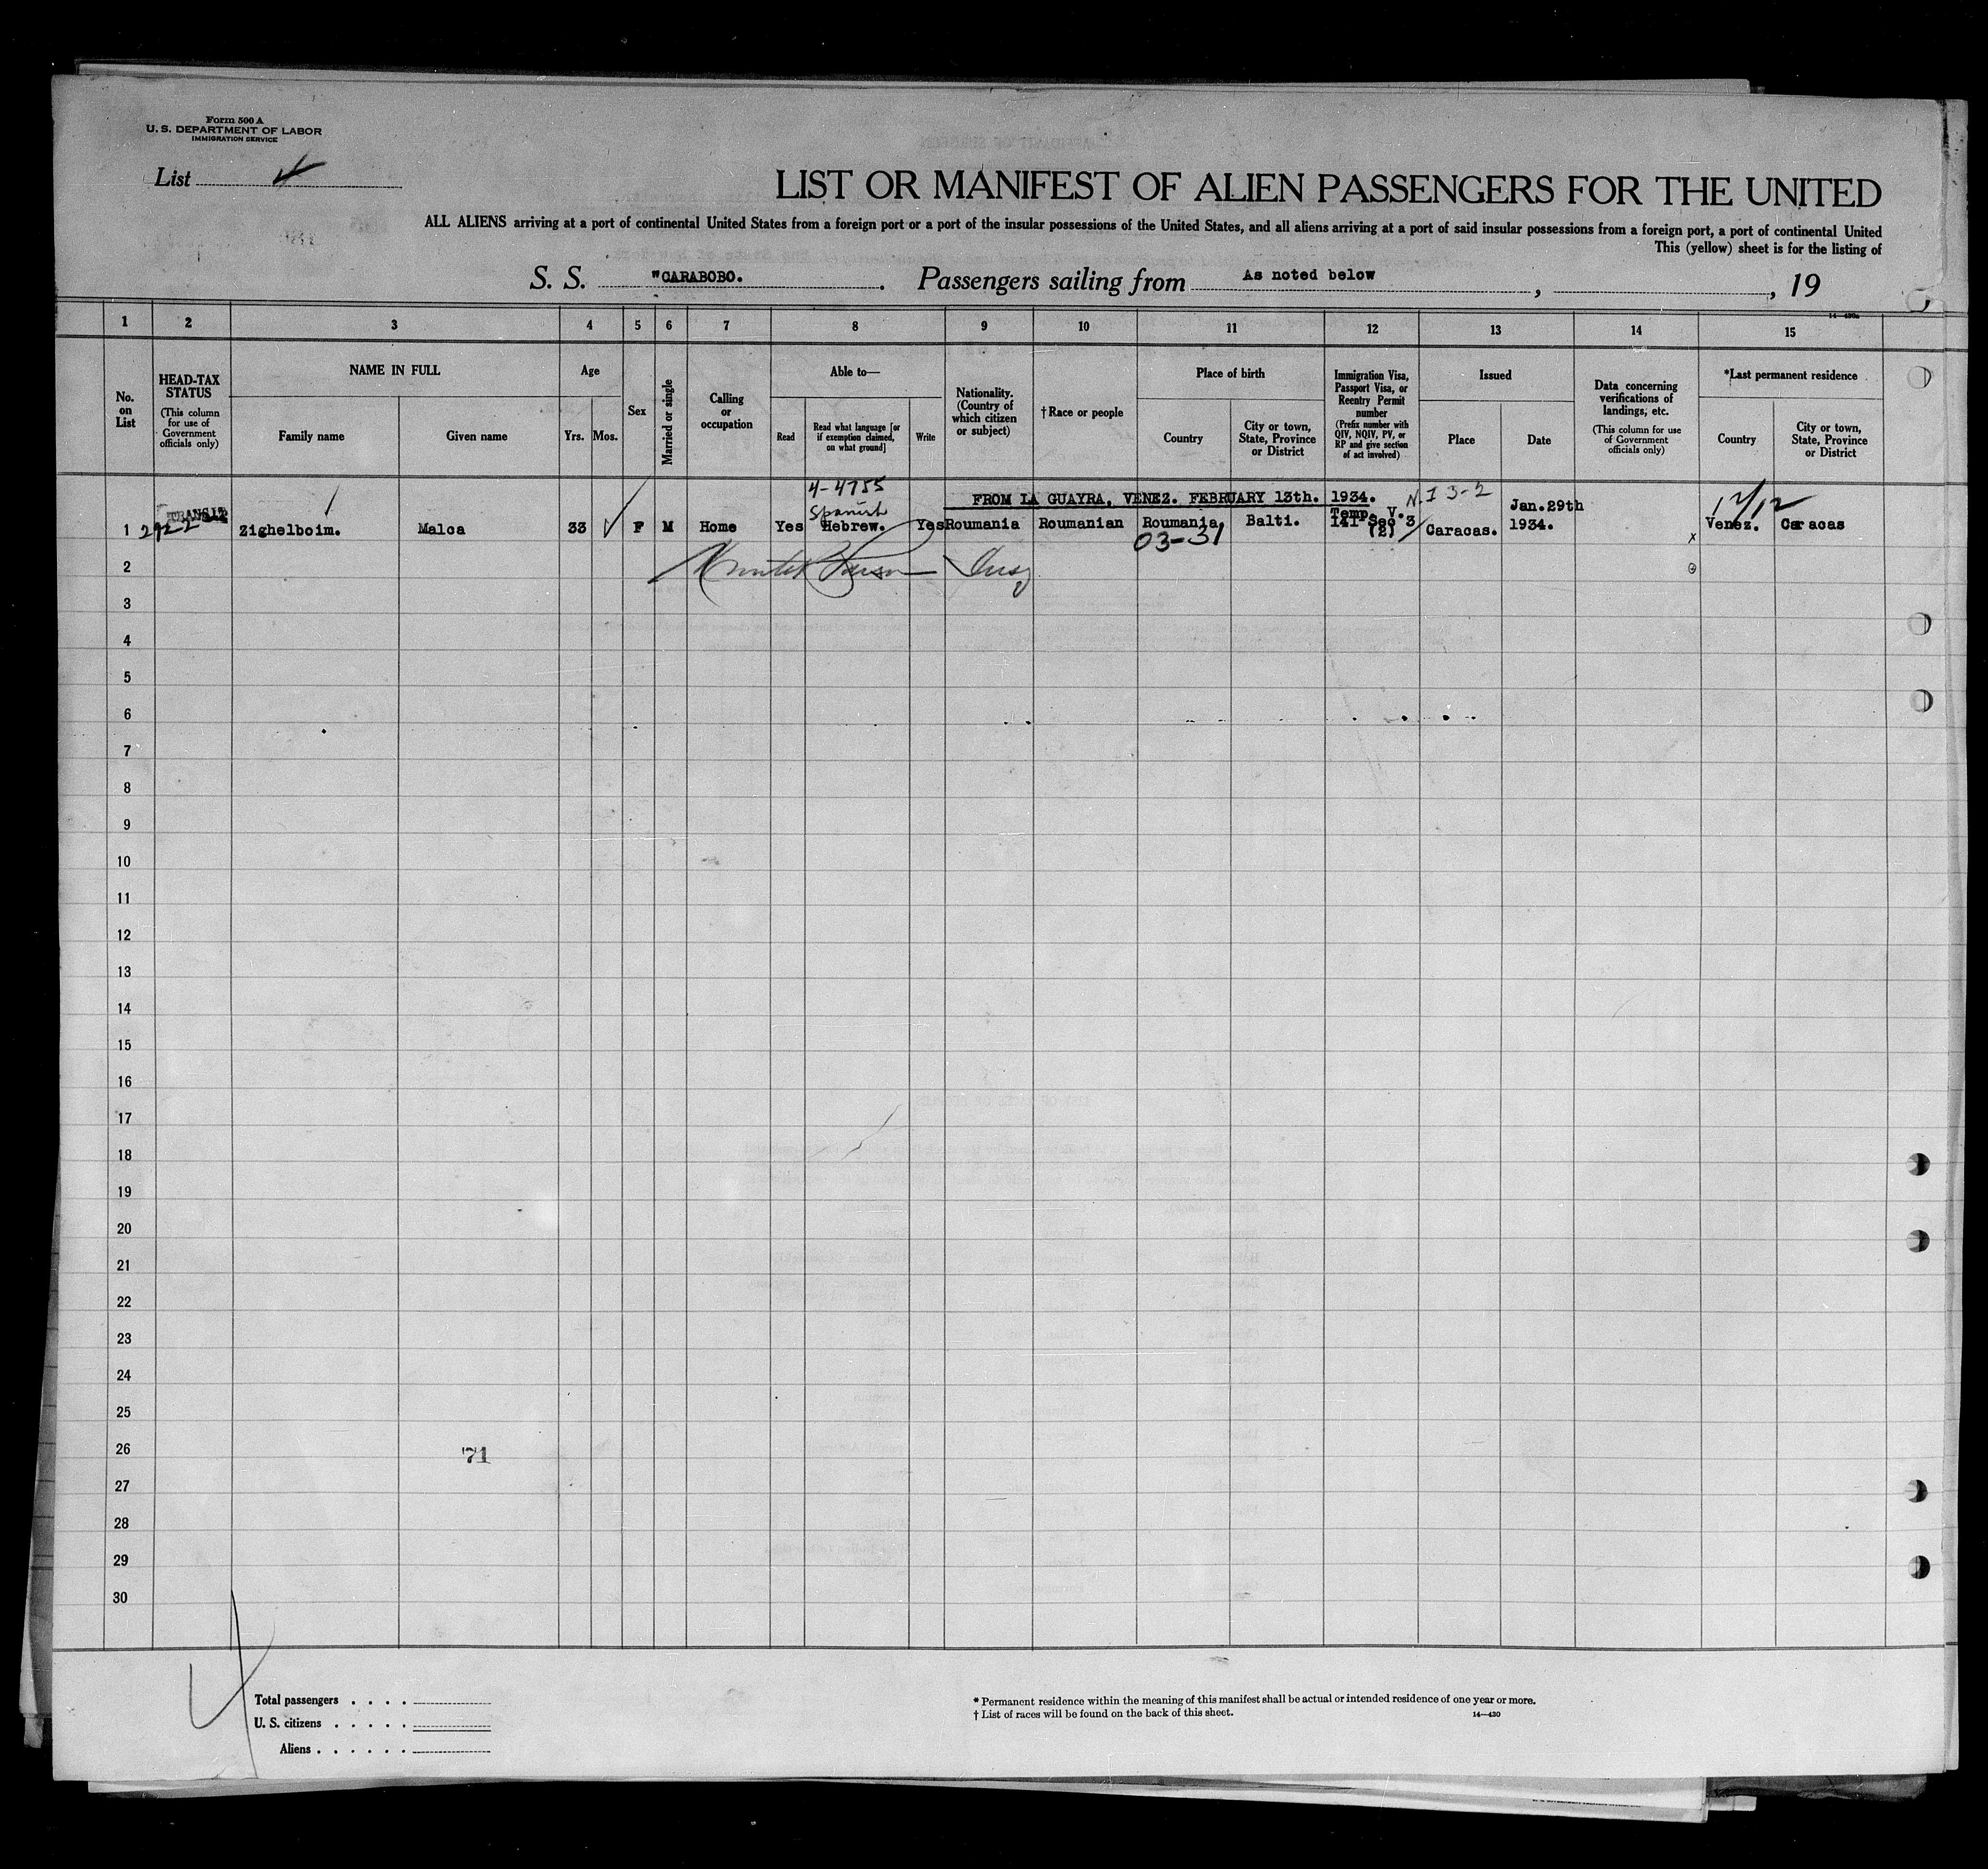 Form 500 A
U. S. DEPARTMENT OF LABOR
IMMIGRATION SERVICE
List
LIST OR MANIFEST OF ALIEN PASSENGERS FOR THE UNITED
ALL ALIENS arriving at a port of continental United States from a foreign port or a port of the insular possessions of the United States, and all aliens arriving at a port of said insular possessions from a foreign port, a port of continental United
This (yellow) sheet is for the listing of
S. S. "CARABOBO. Passengers sailing from As noted below , , 19
1 2 3 4 5 6 7 8 9 10 11 12 13 14 15
No. on List
HEAD-TAX STATUS
(This column for use of Government officials only)
NAME IN FULL
Family name Given name
Age
Yrs. Mos.
Sex
Married or single
Calling or occupation
Able to—
Read
Read what language [or if exemption claimed, on what ground]
Write
Nationality. (Country of which citizen or subject)
†Race or people
Place of birth
Country
City or town, State, Province or District
Immigration Visa, Passport Visa, or Reentry Permit number
(Prefix number with QIV, NQIV, PV, or RP and give section of act involved)
Issued
Place Date
Data concerning verifications of landings, etc.
(This column for use of Government officials only)
*Last permanent residence
Country
City or town, State, Province or District
4-4755
FROM LA GUAYRA, VENEZ. FEBRUARY 13th. 1934. N.I 3-2
TRANSIT Spanish Temp. V. Jan.29th 12/12
1 Zighelboim. Malca 33 F M Home Yes Hebrew. Yes Roumania Roumanian Roumania, Balti. 141 Sec 3 (2) Caracas. 1934. Venez. Caracas
03-31
2
3
4
5
6
7
8
9
10
11
12
13
14
15
16
17
18
19
20
21
22
23
24
25
26 71
27
28
29
30
Total passengers . . . .
U. S. citizens . . . . .
Aliens . . . . . .
* Permanent residence within the meaning of this manifest shall be actual or intended residence of one year or more.
† List of races will be found on the back of this sheet. 14—430